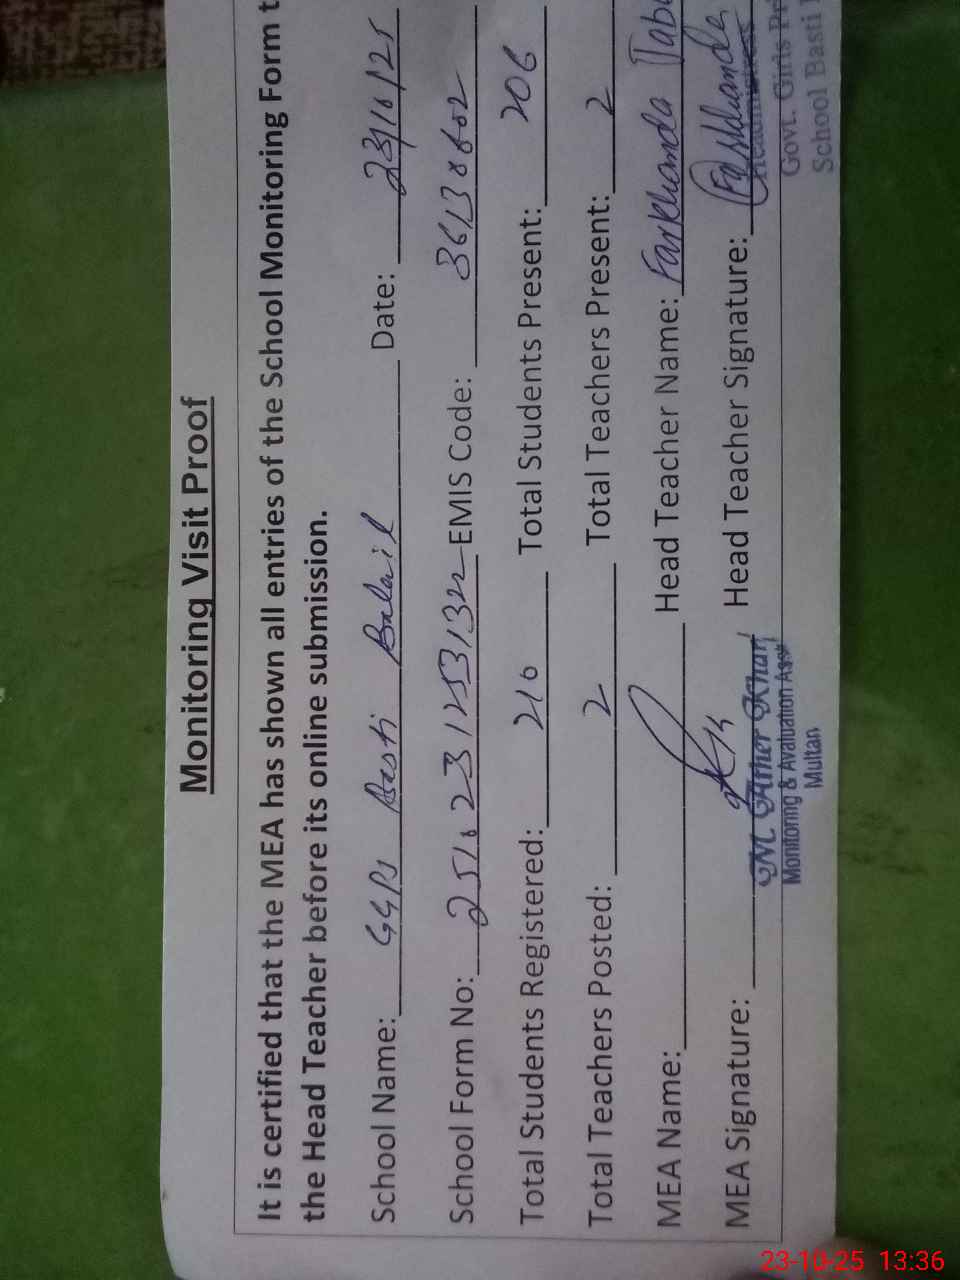 Monitoring Visit Proof
It is certified that the MEA has shown all entries of the School Monitoring Form t
the Head Teacher before its online submission.
School Name: GGPS Basti Date: 23/10/25
School Form No: EMIS Code:
Total Students Registered: 216 Total Students Present: 206
Total Teachers Posted: 2 Total Teachers Present: 2
MEA Name: Head Teacher Name: Farkhanda Tab
MEA Signature: Head Teacher Signature: Farkhanda
M. Ather Khan
Monitoring & Evaluation Asst
Multan
Headmistress
Govt. Girls Pr
School Basti
23-10-25 13:36